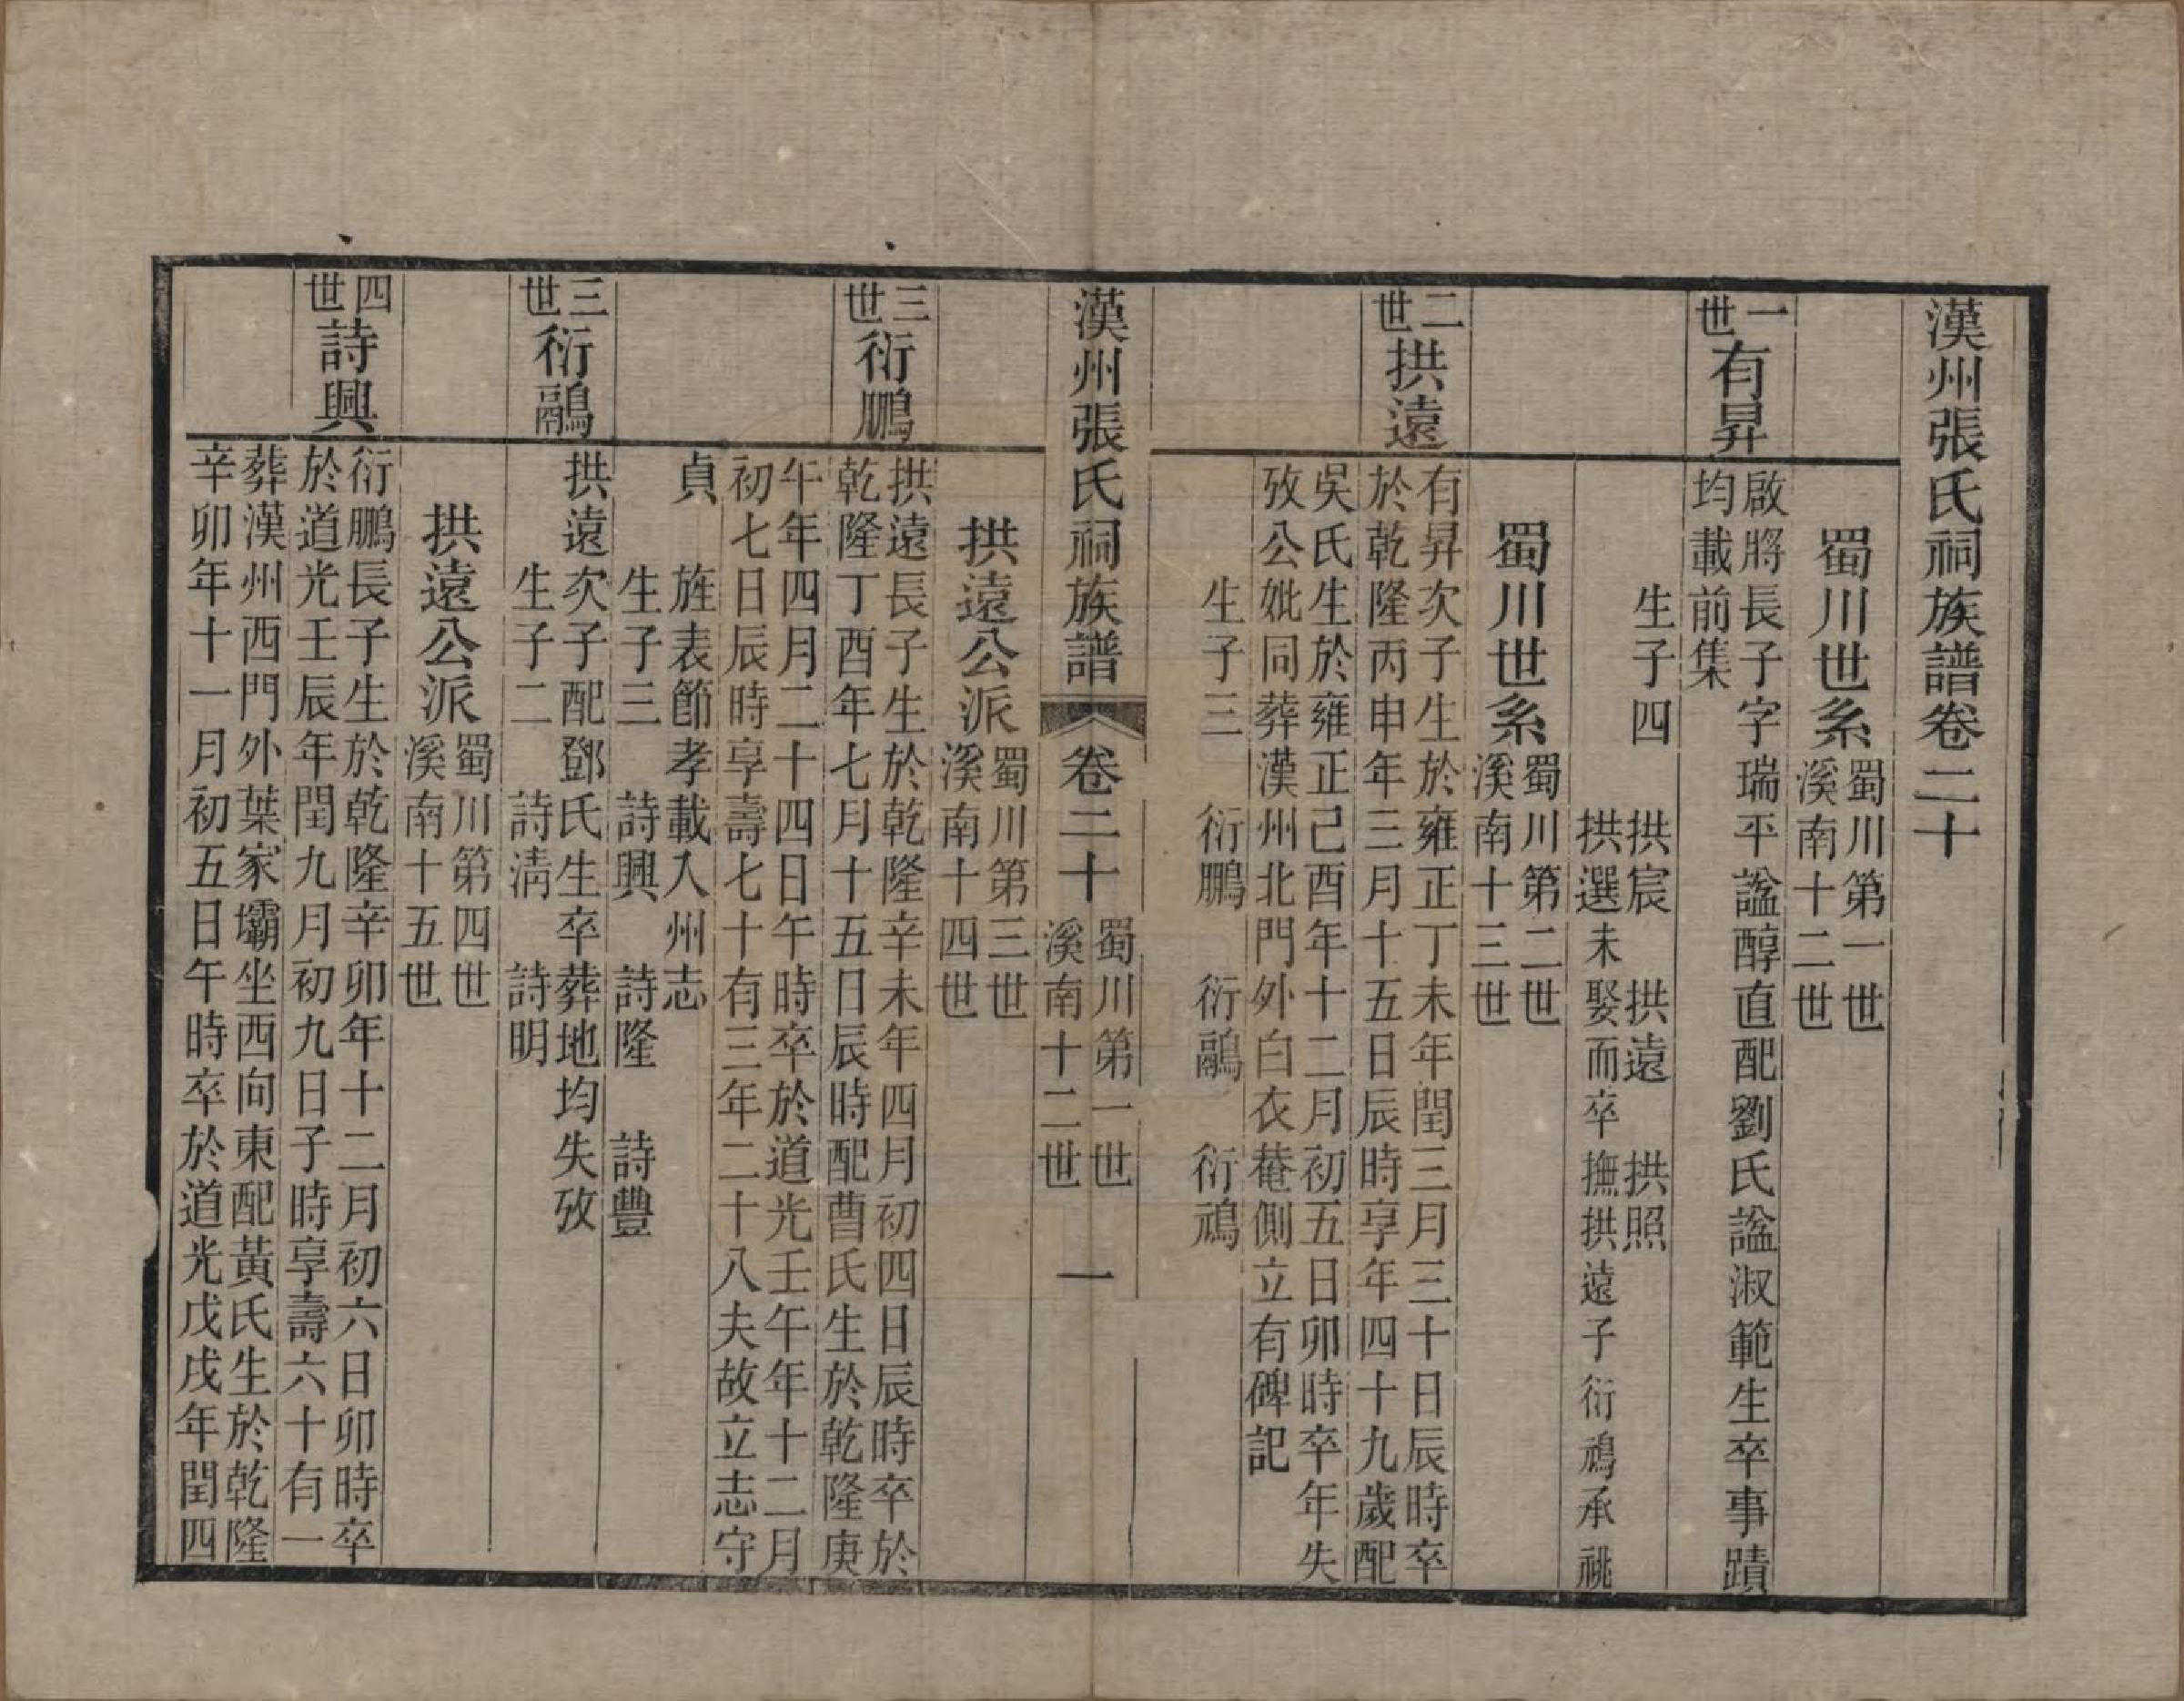 漢州張氏祠族譜卷二十
蜀川世系
蜀川第一世
溪南十二世
一世
有昇
啟將長子字瑞平諡醇直配劉氏諡淑範生卒事蹟
均載前集
生子四 拱宸 拱遠 拱照
拱選未娶而卒撫拱遠子衍鴻承祧
蜀川世系
蜀川第二世
溪南十三世
二世
拱遠
有昇次子生於雍正丁未年閏三月三十日辰時卒
於乾隆丙申年三月十五日辰時享年四十九歲配
吳氏生於雍正己酉年十二月初五日卯時卒年失
攷公妣同葬漢州北門外白衣菴側立有碑記
生子三 衍鵬 衍鷸 衍鴻
漢州張氏祠族譜 卷二十
蜀川第一世
溪南十二世
一
拱遠公派
蜀川第三世
溪南十四世
三世
衍鵬
拱遠長子生於乾隆辛未年四月初四日辰時卒於
乾隆丁酉年七月十五日辰時配曹氏生於乾隆庚
午年四月二十四日午時卒於道光壬午年十二月
初七日辰時享壽七十有三年二十八夫故立志守
貞 旌表節孝載入州志
生子三 詩興 詩隆 詩豐
三世
拱遠次子配鄧氏生卒葬地均失攷
生子二 詩清 詩明
拱遠公派
蜀川第四世
溪南十五世
四世
詩興
衍鵬長子生於乾隆辛卯年十二月初六日卯時卒
於道光壬辰年閏九月初九日子時享壽六十有一
葬漢州西門外葉家壩坐西向東配黃氏生於乾隆
辛卯年十一月初五日午時卒於道光戊戌年閏四